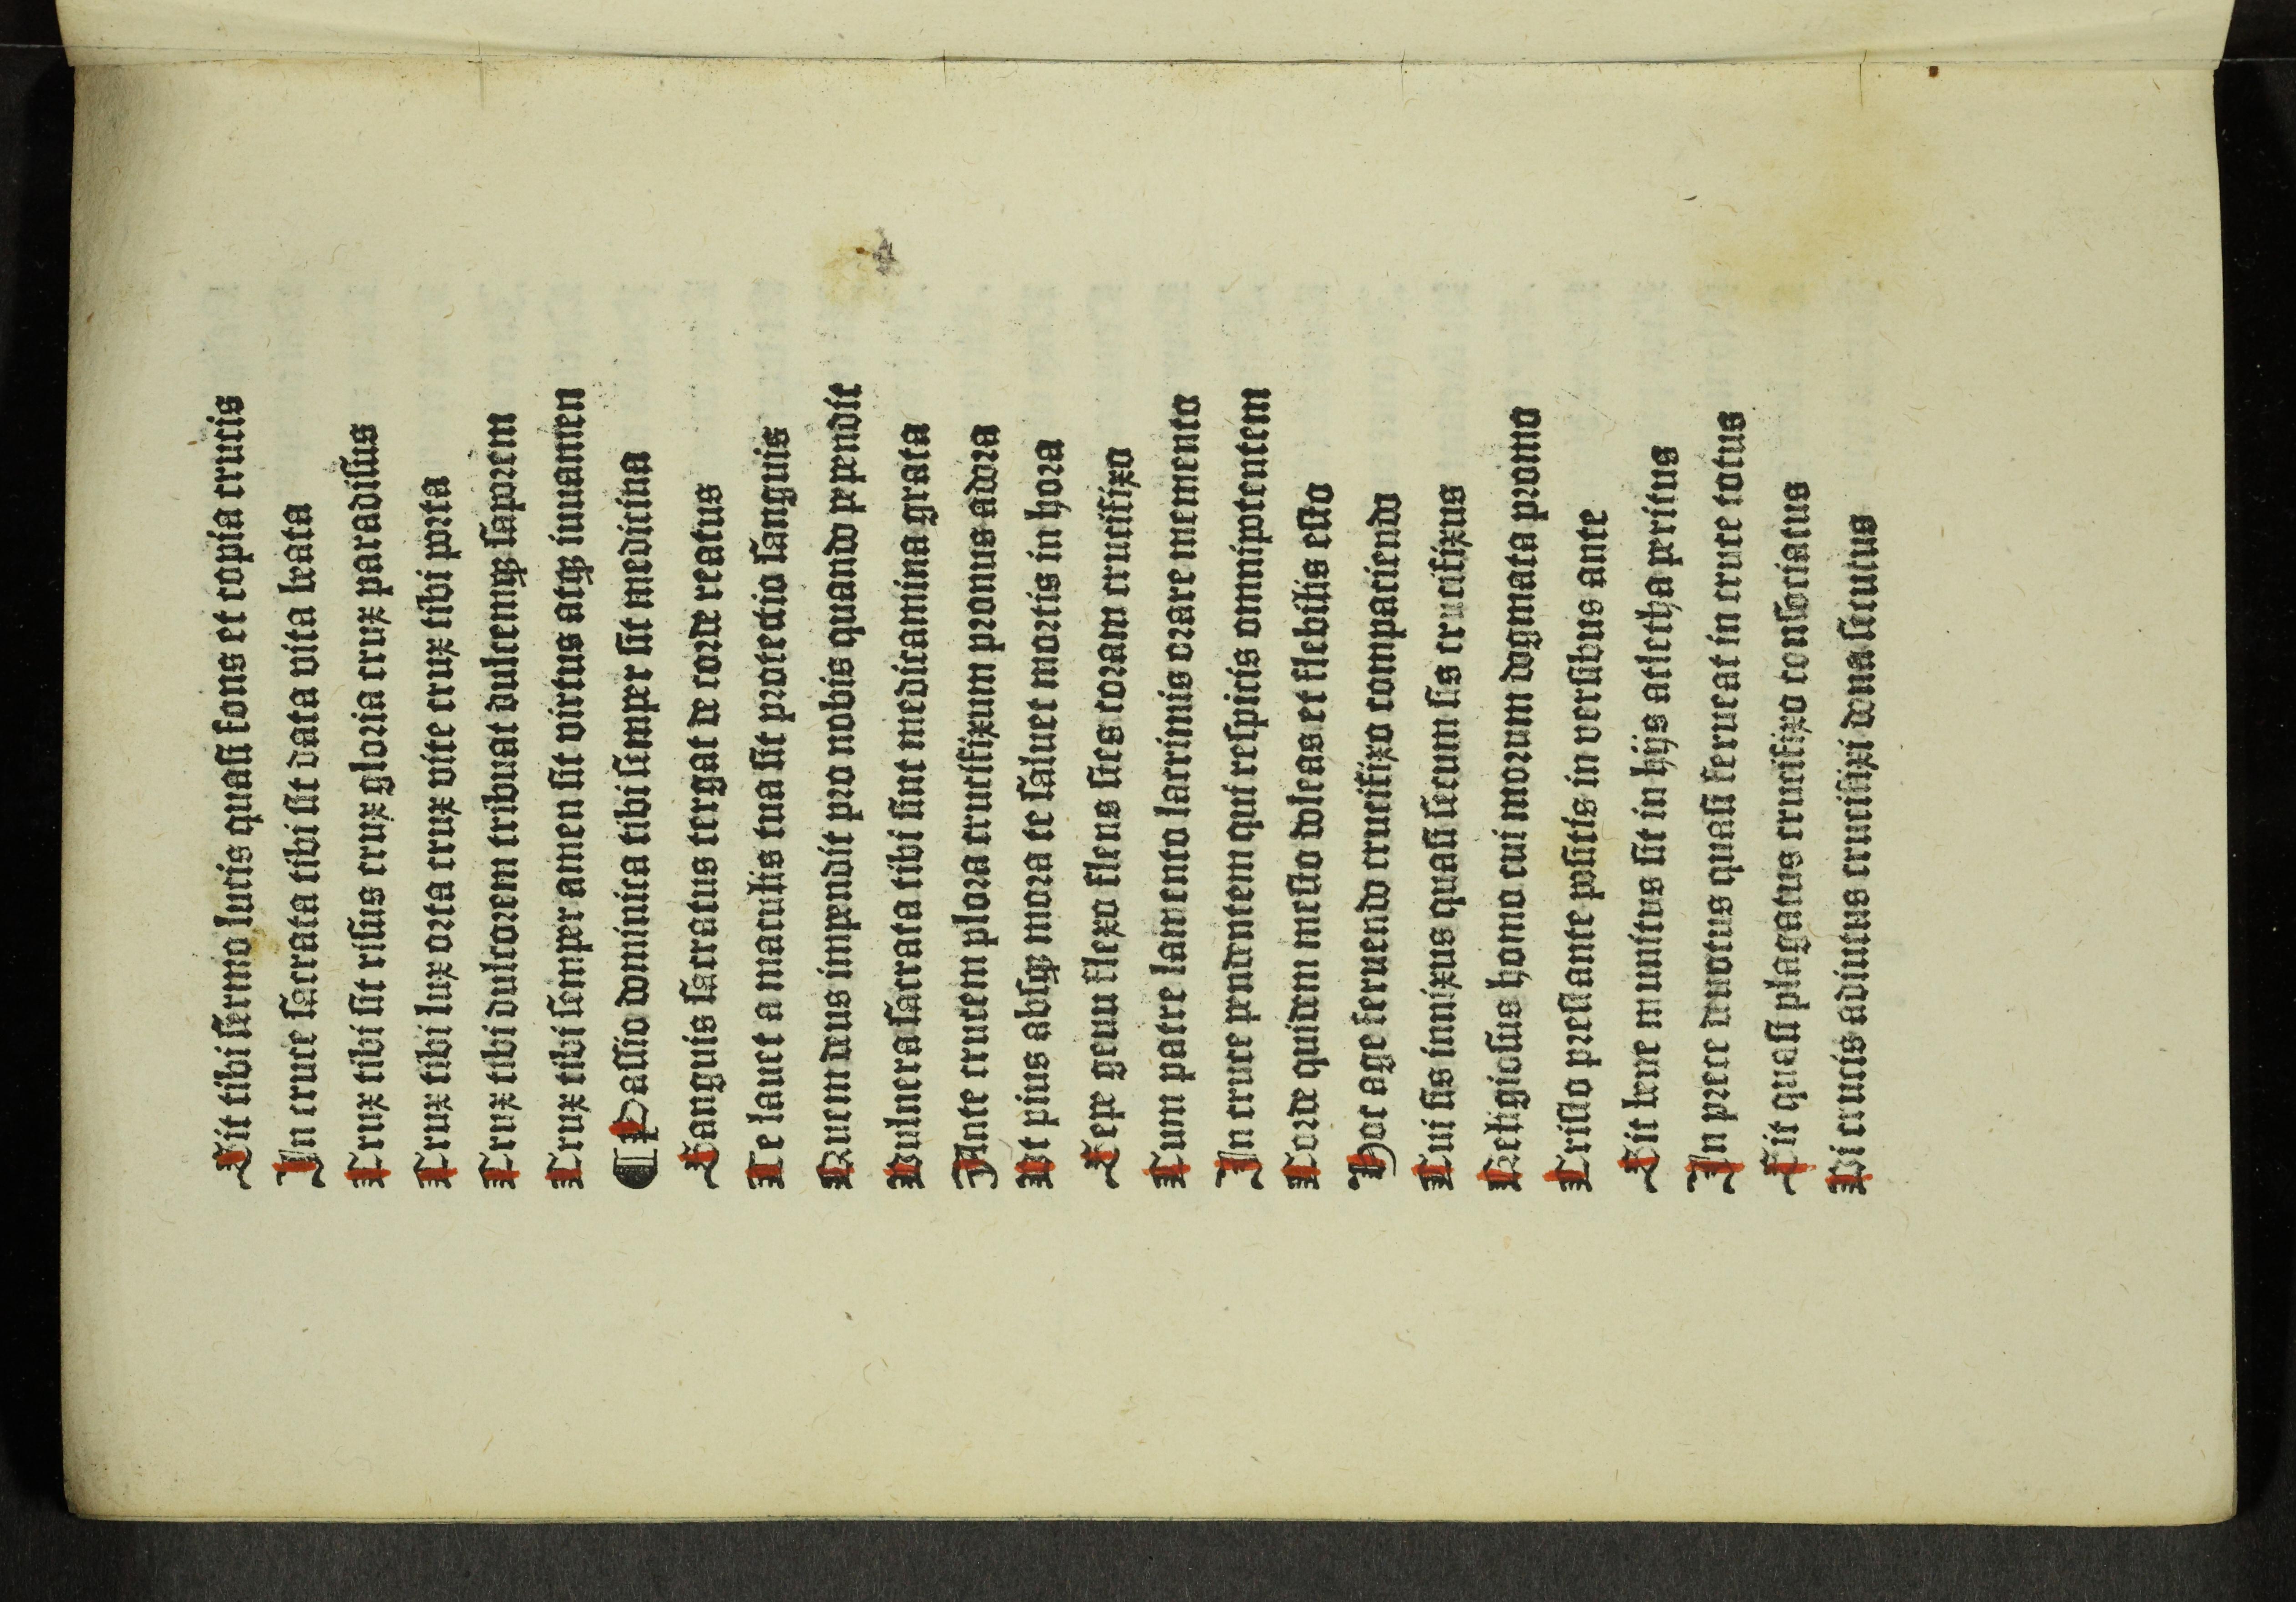 Sit tibi sermo lucis quasi fons et copia crucis
In cruce sacrata tibi sit data vita beata
Crux tibi sit risus crux gloria crux paradisus
Crux tibi lux orta crux vite crux tibi porta
Crux tibi dulcorem tribuat dulcemqꝫ saporem
Crux tibi semper amen sit virtus atqꝫ iuuamen
¶ Passio dominica tibi semper sit medicina
Sanguis sacratus tergat de corde reatus
Te lauet a maculis tua sit protectio sanguis
Quem deus impendit pro nobis quando pependit
Vulnera sacrata tibi sint medicamina grata
Ante crucem plora crucifixum pronus adora
Vt pius absqꝫ mora te saluet mortis in hora
Sepe genu flexo flens stes coram crucifixo
Cum patre lamento lacrimis orare memento
In cruce pendentem qui respicis omnipotentem
Corde quidem mesto doleas et flebilis esto
Hoc age feruendo crucifixo compaciendo
Cui sis innixus quasi secum sis crucifixus
Religiosus homo cui morum dogmata promo
Cristo prestante positis in versibus ante
Sit bene munitus sit in hijs atletha peritus
In prece deuotus quasi ferueat in cruce totus
Sit quasi plagatus crucifixo consociatus
Vi crucis adiutus crucifixi dona secutus